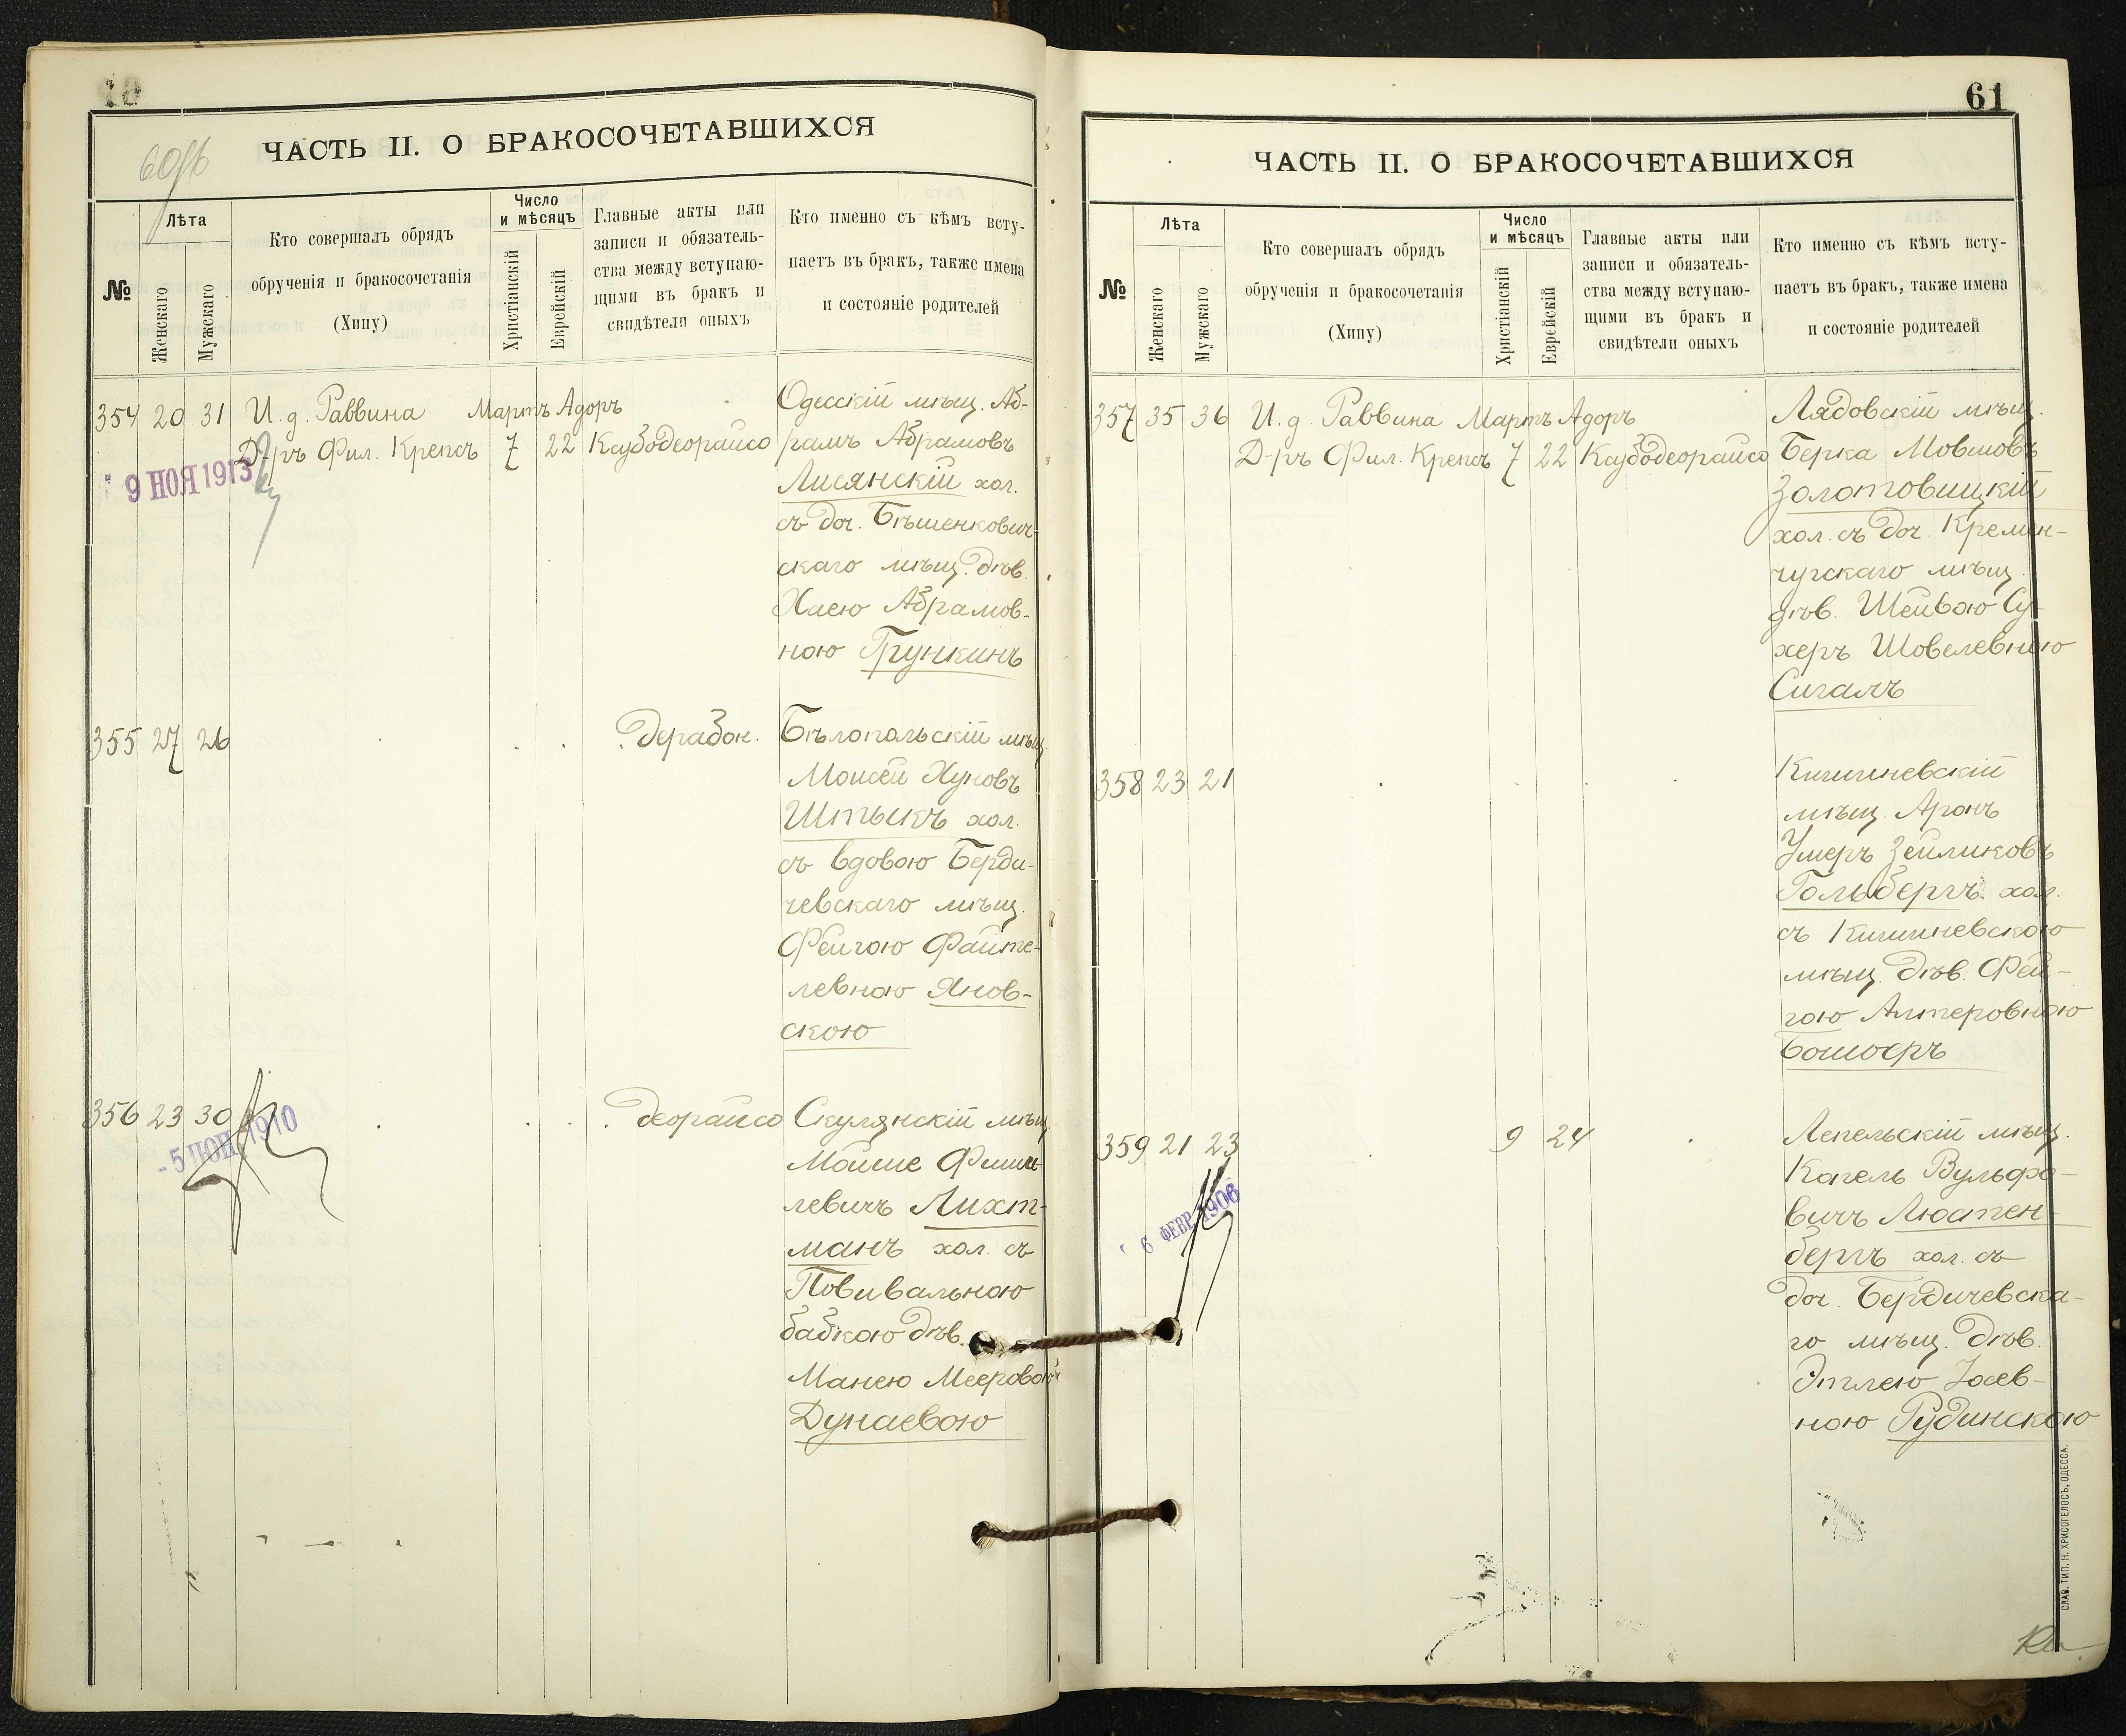 ЧАСТЬ II. О БРАКОСОЧЕТАВШИХСЯ
№
Лѣта
Женскаго
Мужскаго
Кто совершалъ обрядъ
обрученія и бракосочетанія
(Хипу)
Число
и мѣсяцъ
Христіанскій
Еврейскій
Главные акты или
записи и обязатель-
ства между вступаю-
щими въ бракъ и
свидѣтели оныхъ
Кто именно съ кѣмъ всту-
паетъ въ бракъ, также имена
и состояніе родителей
354 20 31 И. д. Раввина Мартъ Адоръ
Д-ръ Фил. Крепсъ 7 22 Каубодеорайсо
9 НОЯ 1913
Одесскій мѣщ. Аб-
рамъ Абрамовъ
Лисянскій хол.
съ доч. Бѣшенкович-
скаго мѣщ. дѣв.
Хаею Абрамов-
ною Грункинъ
355 27 26 дерабон.
Бѣлопольскій мѣщ
Моисей Хуновъ
Штыкъ хол.
съ вдовою Берди-
чевскаго мѣщ.
Фейгою Файте-
левною Янов-
скою
356 23 30 деорайсо
-5 1910
Скулянскій мѣщ
Мойше Фиши-
левичъ Лихт-
манъ хол. съ
Повивальною
бабкою дѣв.
Манею Мееровою
Дунаевою
61
ЧАСТЬ II. О БРАКОСОЧЕТАВШИХСЯ
№
Лѣта
Женскаго
Мужскаго
Кто совершалъ обрядъ
обрученія и бракосочетанія
(Хипу)
Число
и мѣсяцъ
Христіанскій
Еврейскій
Главные акты или
записи и обязатель-
ства между вступаю-
щими въ бракъ и
свидѣтели оныхъ
Кто именно съ кѣмъ всту-
паетъ въ бракъ, также имена
и состояніе родителей
357 35 36 И. д. Раввина Мартъ Адоръ
Д-ръ Фил. Крепсъ 7 22 Каубодеорайсо
Лядовскій мѣщ.
Берка Мовшовъ
Золотовицкій
хол. съ доч. Кремен-
чугскаго мѣщ.
дѣв. Шейвою Су-
херъ Шовелевною
Сигалъ
358 23 21
Кишиневскій
мѣщ. Аронъ
Умеръ Зейликовъ
Гольбергъ хол.
съ Кишиневскою
мѣщ. дѣв. Фей-
гою Алтеровною
Бошоеръ
359 21 23 9 24
6 ФЕВР 1906
Лепельскій мѣщ.
Копель Вульфо-
вичъ Люстен-
бергъ хол. съ
доч. Бердичевска-
го мѣщ. дѣв.
Этлею Іосев-
ною Рудинскою
СЛАВ. ТИП. Н. ХРИСОГЕЛОСЪ, ОДЕССА.